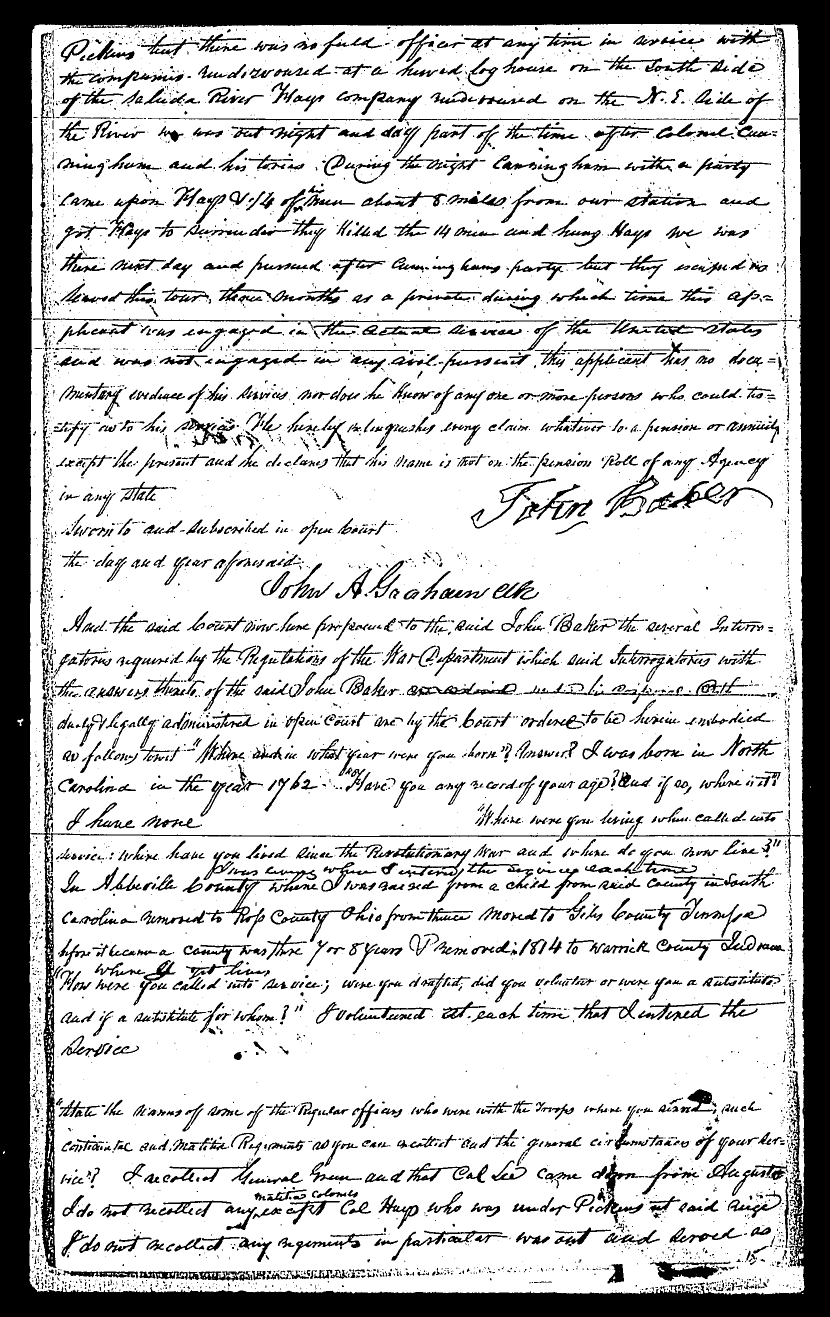 Pickens but there was no field officer at any time in service with
the companies. rendezvoused at a hewed log house on the South Side
of the Saluda River Hays company rendezvoused on the N. E. side of
the River we was out night and day part of the time after Colonel Cun=
ningham and his tories. During the night Cunningham with a party
came upon Hays & 14 of his men about 8 miles from our station and
got Hays to surrender they killed the 14 men and hung Hays we was
there next day and pursued after Cuninghams party but they escaped us
served this tour three months as a private during which time this ap=
plicant was engaged in the actual service of the United States
and was not engaged in any civil pursuit, this applicant has no docu=
mentary evidence of his services nor does he know of any one or more persons who could tes=
=tify as to his services He hereby relinquishes every claim whatever to a pension or annuity
except the present and he declares that his name is not on the pension Roll of any Agency
in any state
John Baker
Sworn to and subscribed in open Court
the day and year aforesaid
John A Graham Clk
And the said Court now here propounded to the said John Baker the several Interro=
gatories required by the Regulations of the War Department which said Interrogatories with
the answers thereto of the said John Baker
duly & legally administered in open Court are by the Court ordered to be herein embodied
as follows towit "Where and in what year were you born"? Answer? I was born in North
Carolina in the year 1762. "Have you any record of your age? and if so, where is it"?
I have none "Where were you living when called into
service: where have you lived since the Revolutionary War and where do you now live?"
I was living when I entered the service each time
In Abbeville County where I was raised from a child from said county in South
Carolina removed to Ross County Ohio from thence moved to Giles County Tennessee
before it became a county was there 7 or 8 years & removed 1814 to Warrick County Indiana
where I yet live
"How were you called into service; were you drafted, did you volunteer or were you a substitute
and if a substitute for whom?" I volunteered at each time that I entered the
Service
"State the names of some of the Regular officers who were with the Troops where you served; such
continental and Militia Regiments as you can recollect and the general circumstances of your ser=
vice"? I recollect General Green and that Col Lee came down from Augusta
militia colonels
I do not recollect any except Col Hays who was under Pickens at said siege
I do not recollect any regiments in particular was out and served as
15.